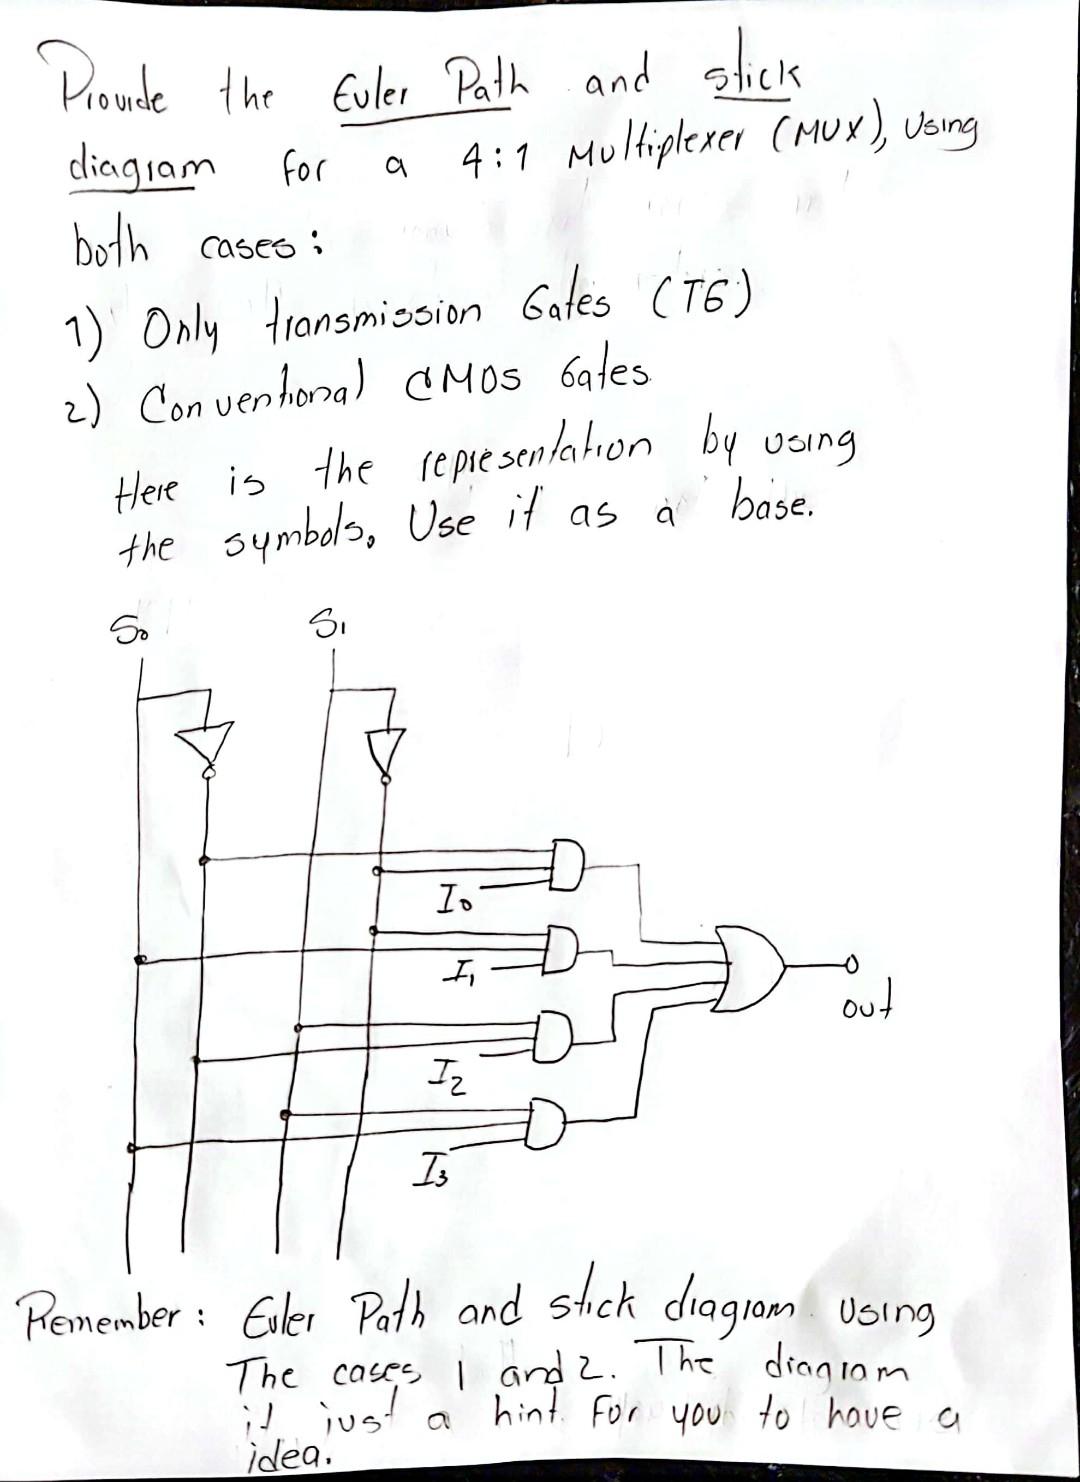 Provide the Euler Path and stick
diagram for a 4:1 Multiplexer (MUX), Using
both cases:
1) Only transmission Gates (TG)
2) Conventional CMOS Gates
Here is the representation by using
the symbols. Use it as a base.
S0 S1
I0
I1
out
I2
I3
Remember: Euler Path and stick diagram using
The cases 1 and 2. The diagram
it just a hint for you to have a
idea.